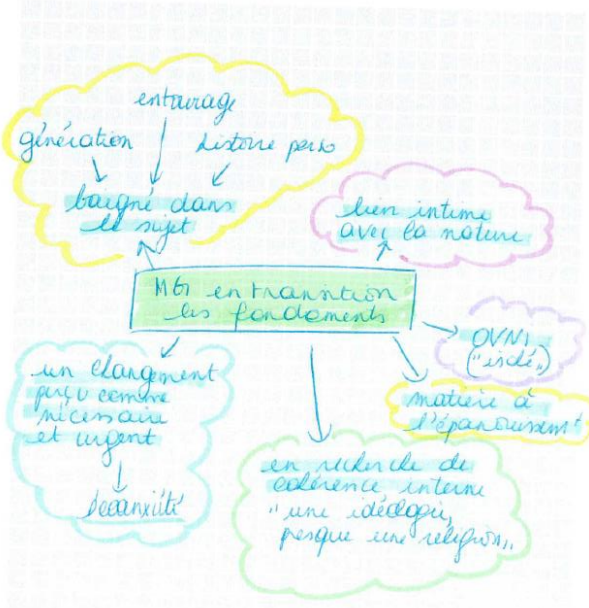 entourage
génération
histoire perso
baigné dans
le sujet
lien intime
avec la nature
MG en transition
les fondaments
OVNI
("isolé")
matière à
l'épanouissemt
un changement
perçu comme
nécessaire
et urgent
écoanxiété
en recherche de
cohérence interne
"une idéologie,
presque une religion"